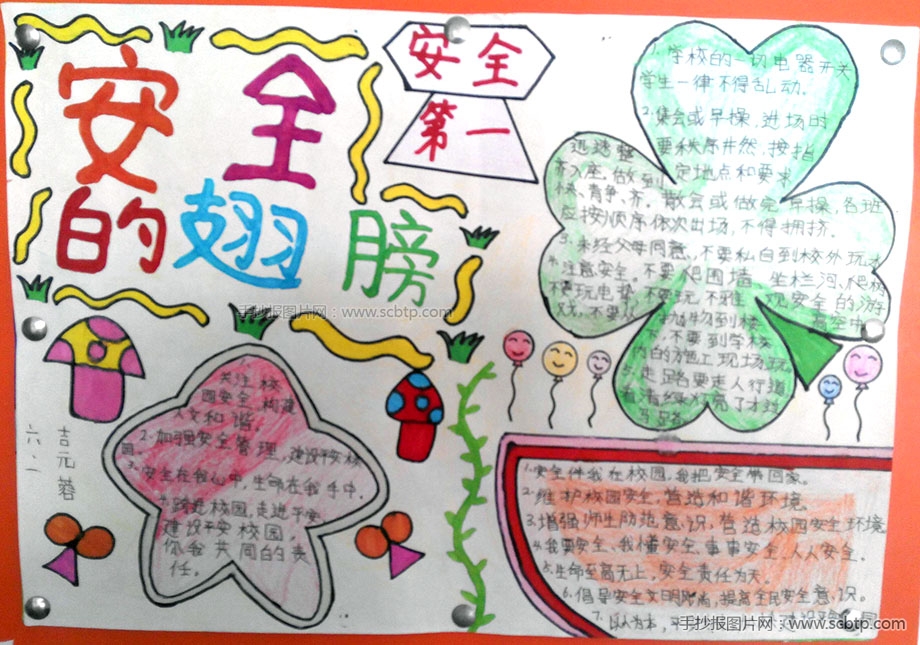 安全
的翅膀
安全
第一
手抄报图片网：www.scbtp.com
六.二
吉元蓉
关注校
园安全,构建
人文和谐.
2.加强安全管理,建设平安校
园.
3.安全在我心中,生命在我手中.
4.跨进校园,走进平安
建设平安校园,
你我共同的责
任.
1.学校的一切电器开关
学生一律不得乱动.
2.集会或早操,进场时
要秩序井然、按指
定地点和要求
迅速整
齐入座.做到
快、青争、齐.散会或做完早操,各班
应按顺序依次出场,不得拥挤.
3.未经父母同意,不要私自到校外玩
4.注意安全,不要爬围墙、坐栏河、爬
不要玩电
安全的游
戏,不要从
高空中
抛物到楼
下,不要到学校
内的施工现场玩
5.走路要走人行道
看清绿灯亮了才过
马路
1.安全伴我在校园,我把安全带回家.
2.维护校园安全,营造和谐环境
3.增强师生防范意识,营造校园安全环境
4.我要安全、我懂安全、事事安全,人人安全.
5.生命至高无上,安全责任为天.
6.倡导安全文明风尚,提高全民安全意识.
7.以人为本,
手抄报图片网：www.scbtp.com